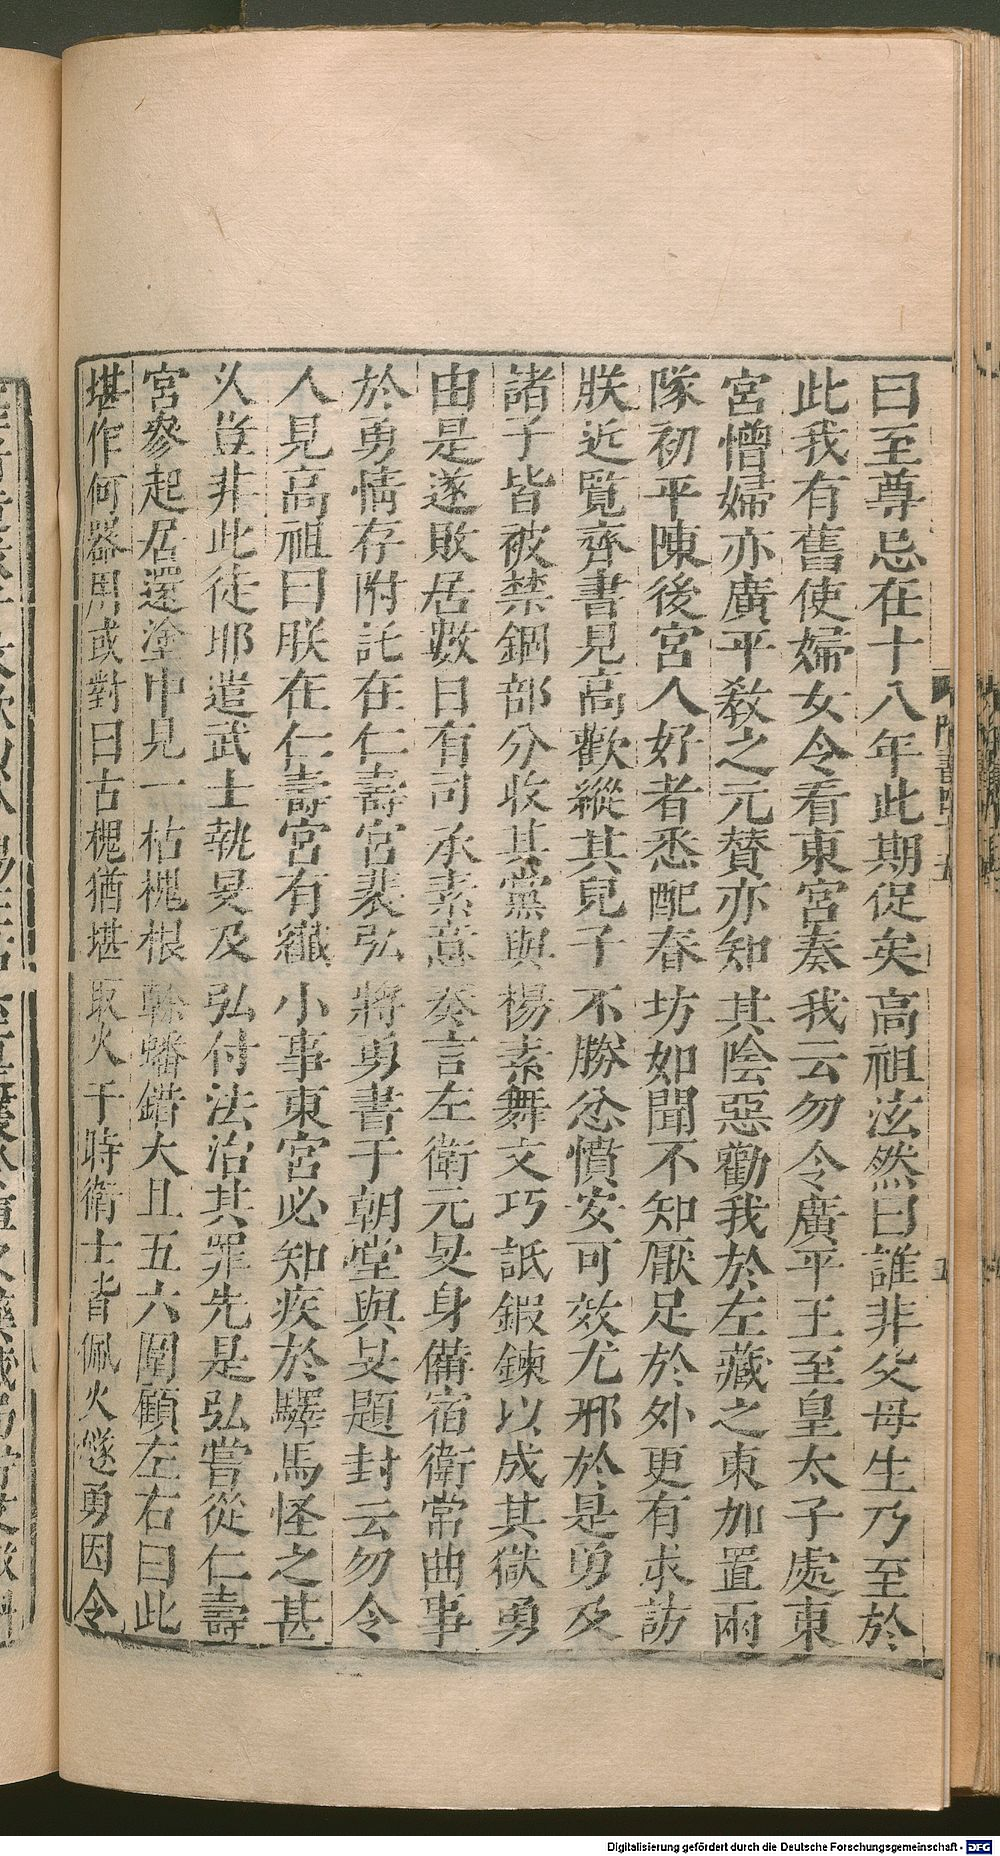 曰至尊忌在十八年此期促矣高祖泫然曰誰非父母生乃至於
此我有舊使婦女令看東宮奏我云勿令廣平王至皇太子處東
宮憎婦亦廣平教之元贊亦知其陰惡勸我於左藏之東加置兩
隊初平陳後宮人好者悉配春坊如聞不知厭足於外更有求訪
朕近覽齊書見高歡縱其兒子不勝忿憤安可效尤邪於是勇及
諸子皆被禁錮部分收其黨與楊素舞文巧詆鍛鍊以成其獄勇
由是遂敗居數日有司承素意奏言左衛元旻身備宿衛常曲事
於勇情存附託在仁壽宮裴弘將勇書于朝堂與旻題封云勿令
人見高祖曰朕在仁壽宮有纖小事東宮必知疾於驛馬怪之甚
久豈非此徒耶遣武士執旻及弘付法治其罪先是弘嘗從仁壽
宮參起居還塗中見一枯槐根幹蟠錯大且五六圍顧左右曰此
堪作何器用或對曰古槐猶堪取火于時衛士皆佩火燧勇因令
隋書四十五
五
Digitalisierung gefördert durch die Deutsche Forschungsgemeinschaft - DFG